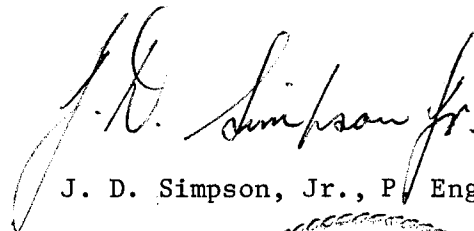 J. D. Simpson Jr.
J. D. Simpson, Jr., P. Eng